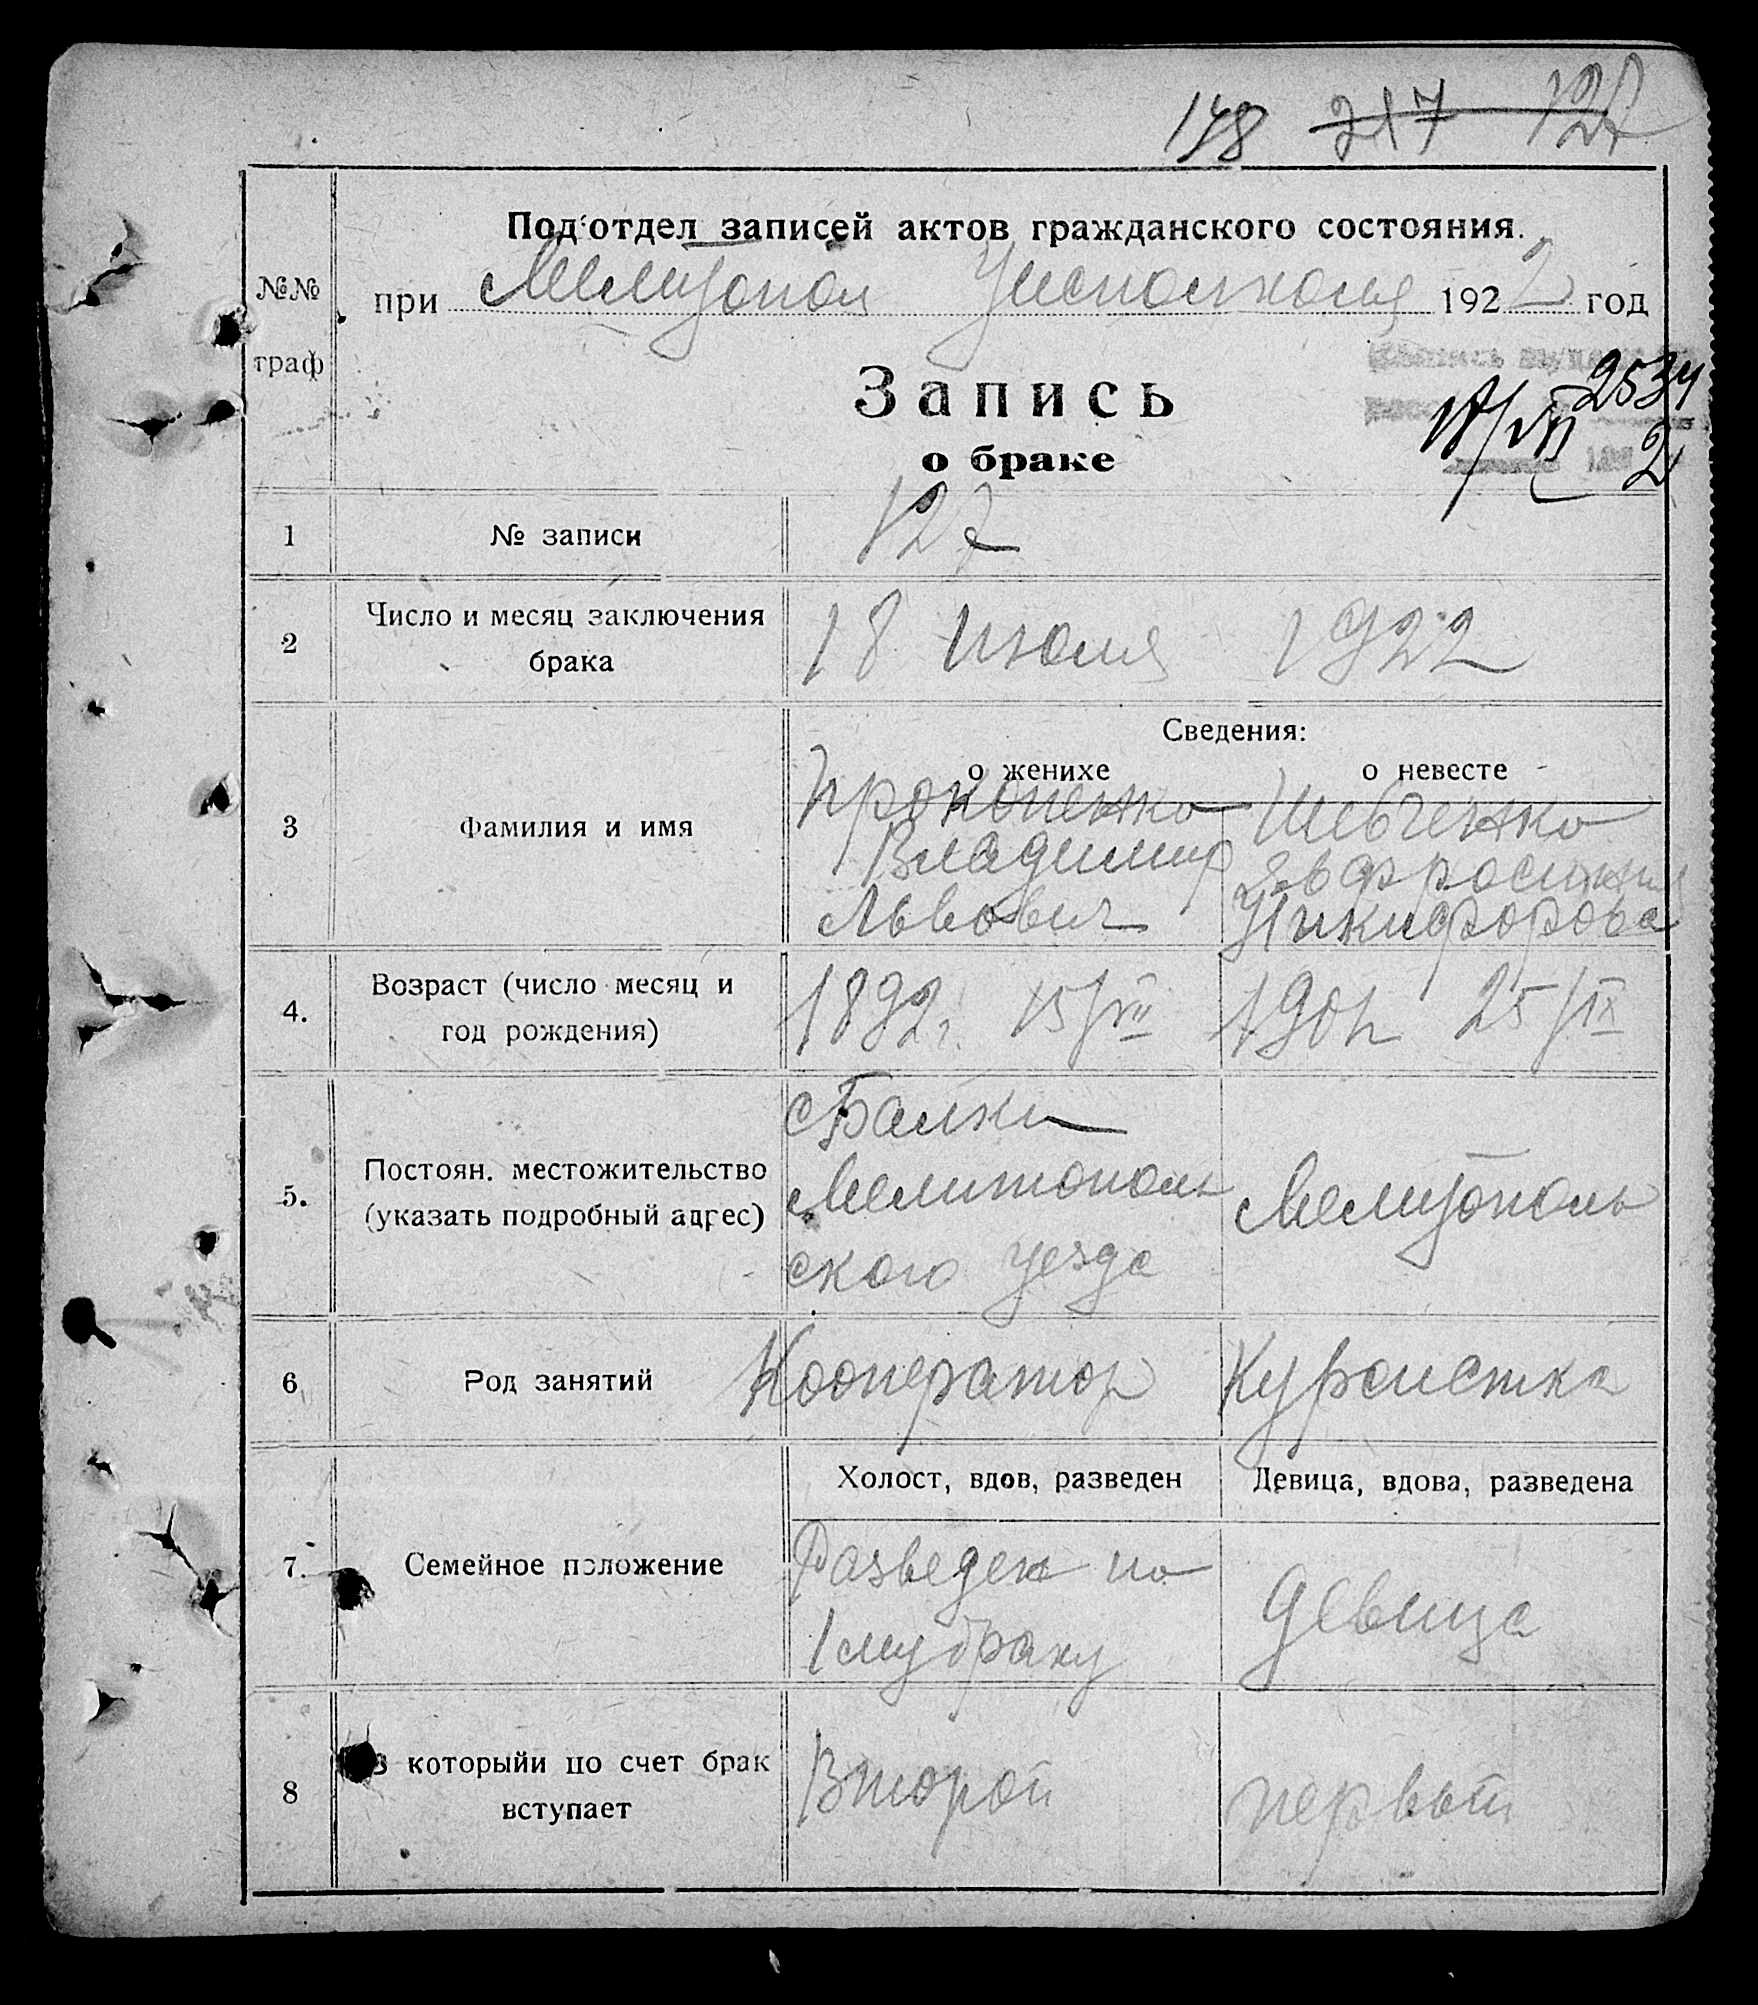 148 217 127
Под'отдел записей актов гражданского состояния.
№№
граф
при Мелитопол Уисполкома 1922 год
Запись
о браке
2534
2
1 № записи 127
2 Число и месяц заключения
брака
18 июля 1922
Сведения:
о женихе о невесте
3 Фамилия и имя
Прокопенко Шевченко
Владимир Эвфросиния
Львович Никифорова
4. Возраст (число месяц и
год рождения)
1892г. 15/VII 1901 25/IX
5. Постоян. местожительство
(указать подробный адрес)
с Балки
Мелитополь
ского уезда
Мелитополь
6 Род занятий Кооператор Курсистка
Холост, вдов, разведен Девица, вдова, разведена
7. Семейное положение
Разведен по
1му браку
девица
8 В которыйи по счет брак
вступает
Второй первый